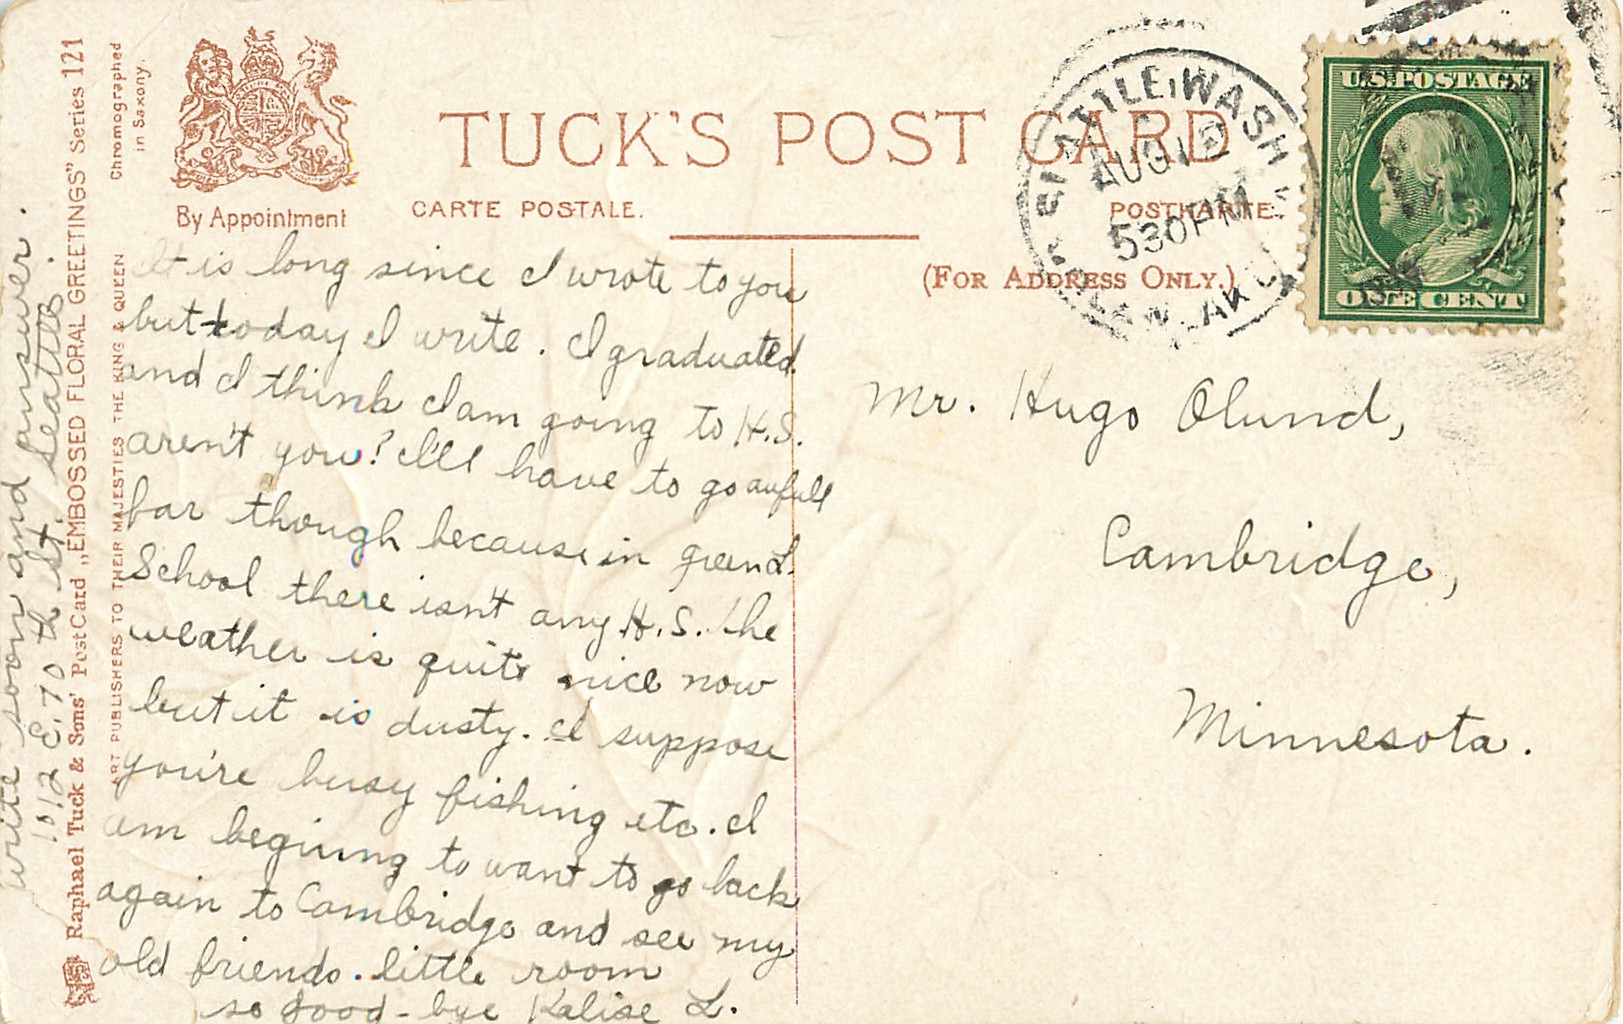 TUCK'S POST CARD
By Appointment
CARTE POSTALE.
POSTKARTE
(FOR ADDRESS ONLY.)
SEATTLE, WASH
AUG 12
530 PM
U.S. POSTAGE
ONE CENT
It is long since I wrote to you
but today I write. I graduated
and I think I am going to H.S.
aren't you? I'll have to go awfull
far though because in green L.
School there isn't any H.S. The
weather is quite nice now
but it is dusty. I suppose
you're busy fishing etc. I
am begining to want to go back
again to Cambridge and see my
old friends. little room
so good-bye Kalise L.
Mr. Hugo Olund,
Cambridge,
Minnesota.
write soon and answer.
1012 E. 70 th St. Seattle.
Raphael Tuck & Sons' Post Card „EMBOSSED FLORAL GREETINGS" Series 121
ART PUBLISHERS TO THEIR MAJESTIES THE KING & QUEEN
Chromographed
in Saxony.